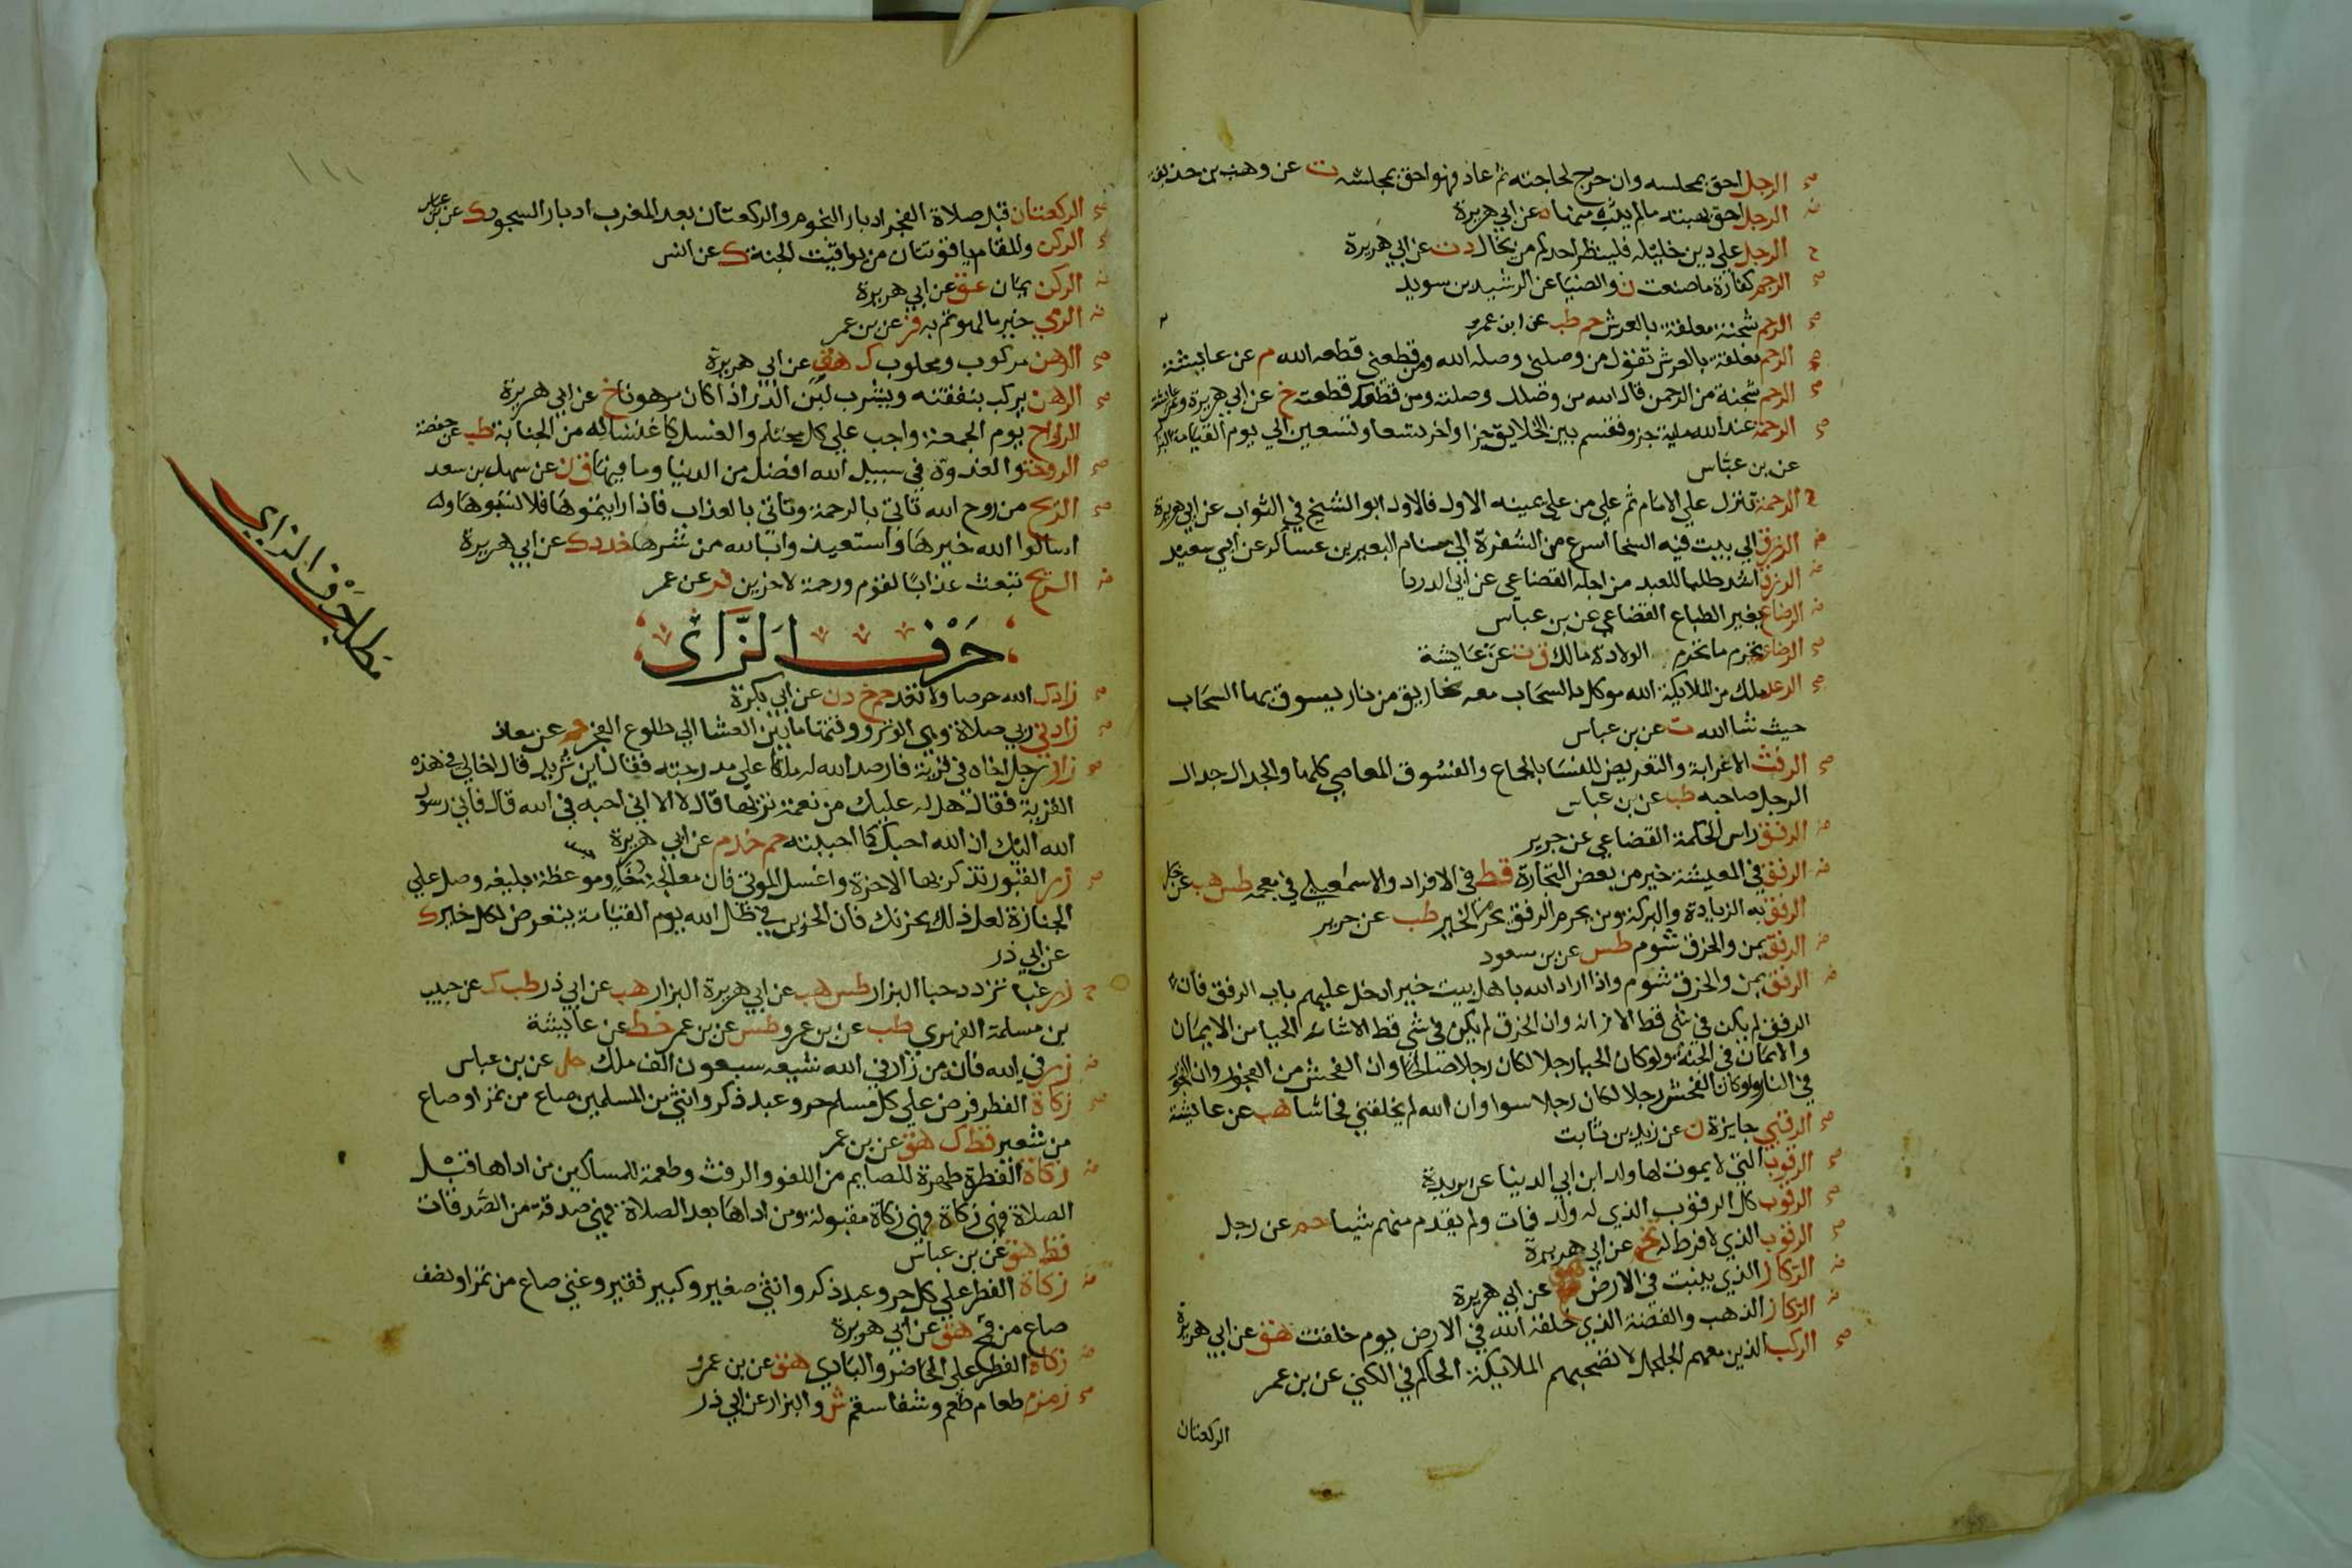 صح الرجل احق بمجلسه وان خرج لحاجته ثم عاد فهو احق بمجلسه ت عن وهب بن حذيفة
ض الرجل احق بهبته مالم يثب منها ه عن ابي هريرة
ح الرجل علي دين خليله فلينظر احدكم من يخالل د ت عن ابي هريرة
صح الرجم كفارة ما صنعت ن والضيا عن الشريد بن سويد
صح الرحم شجنة معلقة بالعرش حم طب عن ابن عمرو
صح الرحم معلقة بالعرش تقول من وصلني وصله الله ومن قطعني قطعه الله م عن عايشة
صح الرحم شجنة من الرحمن قال الله من وصلك وصلته ومن قطعك قطعته خ عن ابي هريرة وعن عايشة
صح الرحمة عند الله ماية جزو فقسم بين الخلايق جزا واخر تسعا وتسعين الي يوم القيامة البزار
عن بن عباس
ح الرحمة تنزل علي الامام ثم علي من علي يمينه الاول فالاول ابو الشيخ في الثواب عن ابي هريرة
ض الرزق الي بيت فيه السخا اسرع من الشفرة الي سنام البعير بن عساكر عن ابي سعيد
ض الرزق اشد طلبا للعبد من اجله القضاعي عن ابي الدردا
ض الرضاع يغير الطباع القضاعي عن بن عباس
صح الرضاعة تحرم ما تحرم الولادة مالك ق ت عن عايشة
صح الرعد ملك من الملايكة الله موكل بالسحاب معه مخاريق من نار يسوق بها السحاب
حيث شا الله ت عن بن عباس
صح الرفث الاعرابة والتعريض للنسا بالجماع والفسوق المعاصي كلها والجدال جدال
الرجل صاحبه طب عن بن عباس
ض الرفق راس الحكمة القضاعي عن جرير
ض الرفق في المعيشة خير من بعض التجارة قط في الافراد والاسمعيلي في معجمه طس هب عن جابر
الرفق به الزيادة والبركة ومن يحرم الرفق يحرم الخير طب عن جرير
ض الرفق يمن والخرق شوم طس عن بن مسعود
ض الرفق يمن والخرق شوم واذا اراد الله باهل بيت خيرا دخل عليهم باب الرفق فان
الرفق لم يكن في شي قط الا زانه وان الخرق لم يكن في شي قط الا شانه الحيا من الايمان
والايمان في الجنة ولو كان الحيا رجلا لكان رجلا صالحا وان الفحش من الفجور وان الفجور
في النار ولو كان الفحش رجلا لكان رجلا سوا وان الله لم يخلقني فحاشا هب عن عايشة
صح الرقبي جايزة ن عن زيد بن ثابت
صح الرقوب التي لا يموت لها ولد ابن ابي الدنيا عن بريدة
صح الرقوب كل الرقوب الذي له ولد فمات ولم يقدم منهم شيا حم عن رجل
صح الرقوب الذي لا فرط له تخ عن ابي هريرة
ض الركاز الذي ينبت في الارض هق عن ابي هريرة
ض الركاز الذهب والفضة الذي خلقه الله في الارض يوم خلقت هق عن ابي هريرة
صح الركب الذين معهم الجلجل لا تصحبهم الملايكة الحاكم في الكني عن بن عمر
الركعتان
صح الركعتان قبل صلاة الفجر ادبار النجوم والركعتان بعد المغرب ادبار السجود ك عن بن عباس
صح الركن والمقام ياقوتتان من يواقيت الجنة ك عن انس
ض الركن يمان عق عن ابي هريرة
ض الرمي خير ما لهوتم به فر عن بن عمر
صح الرهن مركوب ومحلوب ك هق عن ابي هريرة
صح الرهن يركب بنفقته ويشرب لبن الدر اذا كان مرهونا خ عن ابي هريرة
الرواح يوم الجمعة واجب علي كل محتلم والغسل كاغتساله من الجنابة طب عن حفصة
صح الروحة والغدوة في سبيل الله افضل من الدنيا وما فيها ق ن عن سهل بن سعد
صح الريح من روح الله تاتي بالرحمة وتاتي بالعذاب فاذا رايتموها فلا تسبوها وله
اسالوا الله خيرها واستعيذوا بالله من شرها خد د ك عن ابي هريرة
ض الريح تبعث عذابا لقوم ورحمة لاخرين فر عن عمر
حرف الزاي
مطلب حرف الزاي
صح زادك الله حرصا ولا تعد حم خ د ن عن ابي بكرة
صح زادني ربي صلاة وهي الوتر ووقتها مابين العشا الي طلوع الفجر حم عن معاذ
صح زار رجل اخاه في قرية فارصد الله له ملكا علي مدرجته فقال اين تريد قال اخا لي في هذه
القرية فقال هل له عليك من نعمة تربها قال لا الا اني احبه في الله قال فاني رسول
الله اليك ان الله احبك كما احببته حم خد م عن ابي هريرة
صح زر القبور تذكر بها الاخرة واغسل الموتي فان معالجة جسد خاو موعظة بليغه وصل علي
الجنازة لعل ذلك يحزنك فان الحزين في ظل الله يوم القيامة يتعرض لكل خير ك
عن ابي ذر
ح زر غبا تزدد حبا البزار طس هب عن ابي هريرة البزار هب عن ابي ذر طب ك عن حبيب
بن مسلمة الفهري طب عن بن عمرو طس عن بن عمر خط عن عايشة
ض زر في الله فان من زار في الله شيعه سبعون الف ملك حل عن بن عباس
صح زكاة الفطر فرض علي كل مسلم حر وعبد ذكر وانثي من المسلمين صاع من تمر او صاع
من شعير قط ك هق عن بن عمر
ض زكاة الفطرة طهرة للصايم من اللغو والرفث وطعمة للمساكين من اداها قبل
الصلاة فهي زكاة فهي زكاة مقبولة ومن اداها بعد الصلاة فهي صدقة من الصدقات
قط هق عن بن عباس
ض زكاة الفطر علي كل حر وعبد ذكر وانثي صغير وكبير فقير وغني صاع من تمر او نصف
صاع من قمح هق عن ابي هريرة
ض زكاة الفطر علي الحاضر والبادي هق عن بن عمرو
صح زمزم طعام طعم وشفا سقم ش والبزار عن ابي ذر